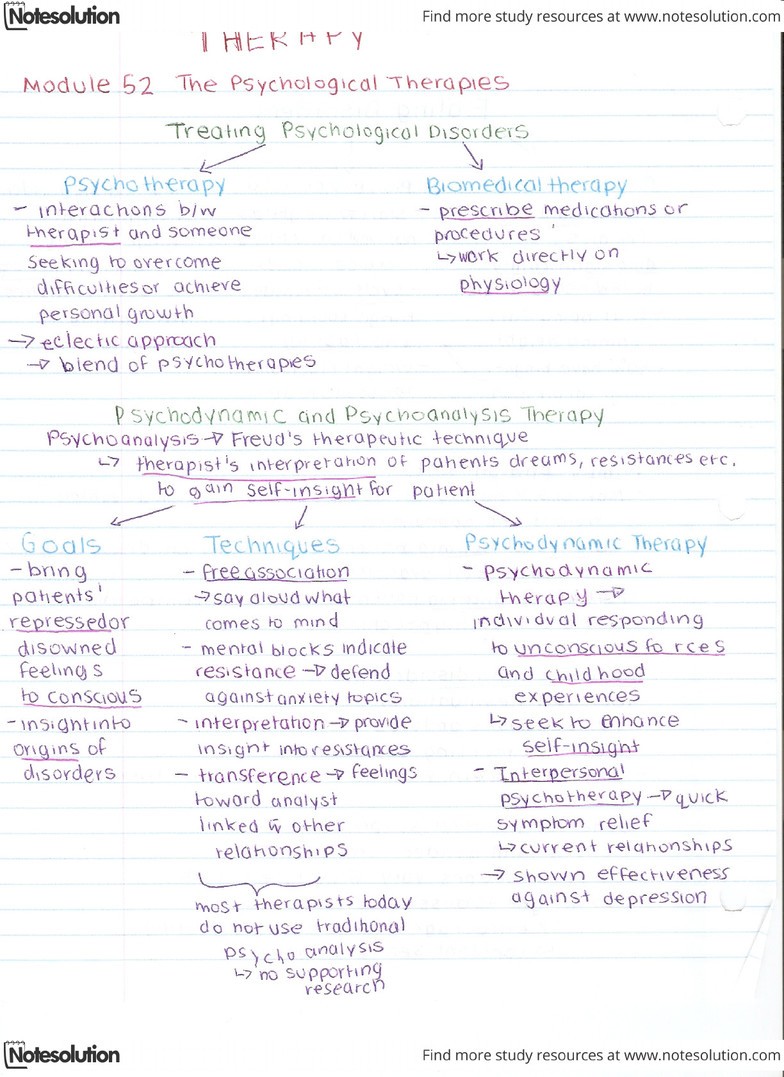 Notesolution
Find more study resources at www.notesolution.com
THERAPY
Module 52 The Psychological Therapies
Treating Psychological Disorders
Psychotherapy
- interactions b/w
therapist and someone
seeking to overcome
difficulties or achieve
personal growth
→ eclectic approach
→ blend of psychotherapies
Biomedical therapy
- prescribe medications or
procedures
↳ work directly on
physiology
Psychodynamic and Psychoanalysis Therapy
Psychoanalysis → Freud's therapeutic technique
↳ therapist's interpretation of patients dreams, resistances etc.
to gain self-insight for patient
Goals
- bring
patients'
repressed or
disowned
feelings
to conscious
- insight into
origins of
disorders
Techniques
- free association
→ say aloud what
comes to mind
- mental blocks indicate
resistance → defend
against anxiety topics
- interpretation → provide
insight into resistances
- transference → feelings
toward analyst
linked w other
relationships
most therapists today
do not use traditional
psychoanalysis
↳ no supporting
research
Psychodynamic Therapy
- psychodynamic
therapy →
individual responding
to unconscious forces
and childhood
experiences
↳ seek to enhance
self-insight
- Interpersonal
psychotherapy → quick
symptom relief
↳ current relationships
→ shown effectiveness
against depression
Notesolution
Find more study resources at www.notesolution.com